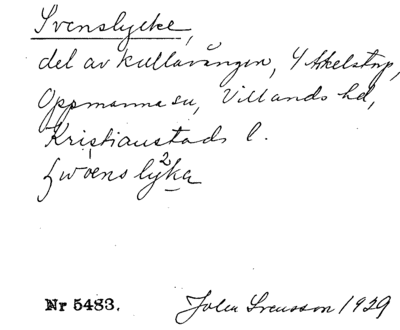 Svenslycke,
del av kullavången, 4 Arkelstorp,
Oppmanna sn, Villands hd,
Kristianstads l.
sve̦ns ly²ka
Nr 5483. John Svensson 1929